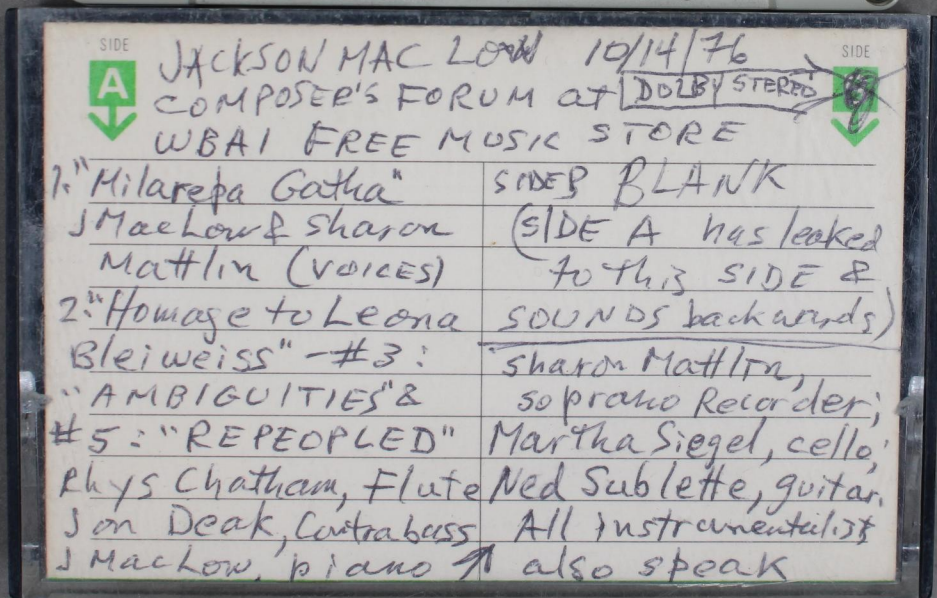 SIDE
A
SIDE
JACKSON MAC LOW 10/14/76
COMPOSER'S FORUM at DOLBY STEREO
WBAI FREE MUSIC STORE
1. "Milarepa Gatha"
J MacLow & Sharon
Mattlin (VOICES)
2. "Homage to Leona
Bleiweiss" - #3:
"AMBIGUITIES" &
#5: "REPEOPLED"
Rhys Chatham, Flute
Jon Deak, Contrabass
J MacLow, piano ↗
SIDE B BLANK
(SIDE A has leaked
to this SIDE &
SOUNDS backwards)
Sharon Mattlin,
soprano Recorder;
Martha Siegel, cello;
Ned Sublette, guitar.
All instrumentalists
also speak